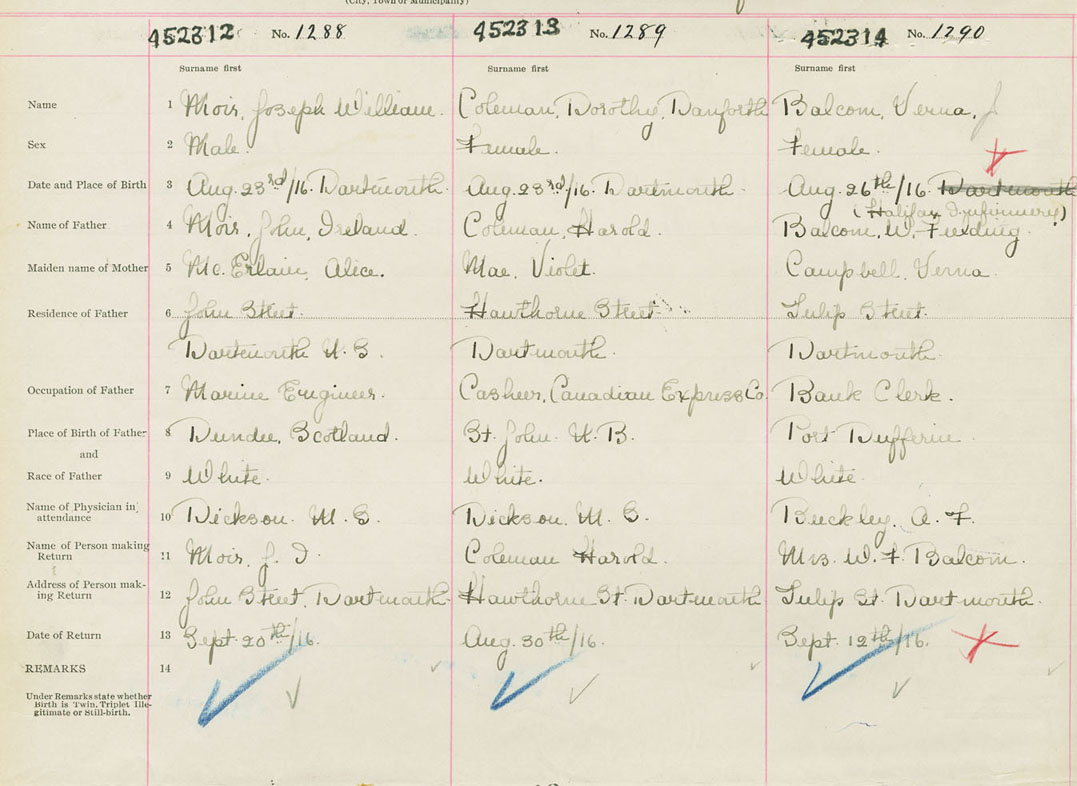 (City, Town or Municipality)
452312 No. 1288 452313 No. 1289 452314 No. 1290
Surname first Surname first Surname first
Name 1 Moir, Joseph William. Coleman, Dorothy, Danforth Balcom, Verna, J
Sex 2 Male. Female. Female.
Date and Place of Birth 3 Aug. 23rd/16. Dartmouth. Aug. 23rd/16. Dartmouth. Aug. 26th/16. Dartmouth
(Halifax Infirmary)
Name of Father 4 Moir, John, Ireland. Coleman, Harold. Balcom, W. Fielding.
Maiden name of Mother 5 Mc. Erlain, Alice. Mae, Violet. Campbell, Verna.
Residence of Father 6 John Street. Hawthorne Street. Tulip Street.
Dartmouth N. S. Dartmouth. Dartmouth.
Occupation of Father 7 Marine Engineer. Casheer, Canadian Express Co. Bank Clerk.
Place of Birth of Father 8 Dundee, Scotland. St. John. N. B. Port Dufferin.
and
Race of Father 9 White. White. White.
Name of Physician in
attendance 10 Dickson. M. S. Dickson. M. S. Buckley, A. F.
Name of Person making
Return 11 Moir, J. I. Coleman Harold. Mrs. W. F. Balcom.
Address of Person mak-
ing Return 12 John Street, Dartmouth. Hawthorne St. Dartmouth Tulip St. Dartmouth.
Date of Return 13 Sept. 20th/16. Aug. 30th/16. Sept. 12th/16.
REMARKS 14
Under Remarks state whether
Birth is Twin, Triplet Ille-
gitimate or Still-birth.